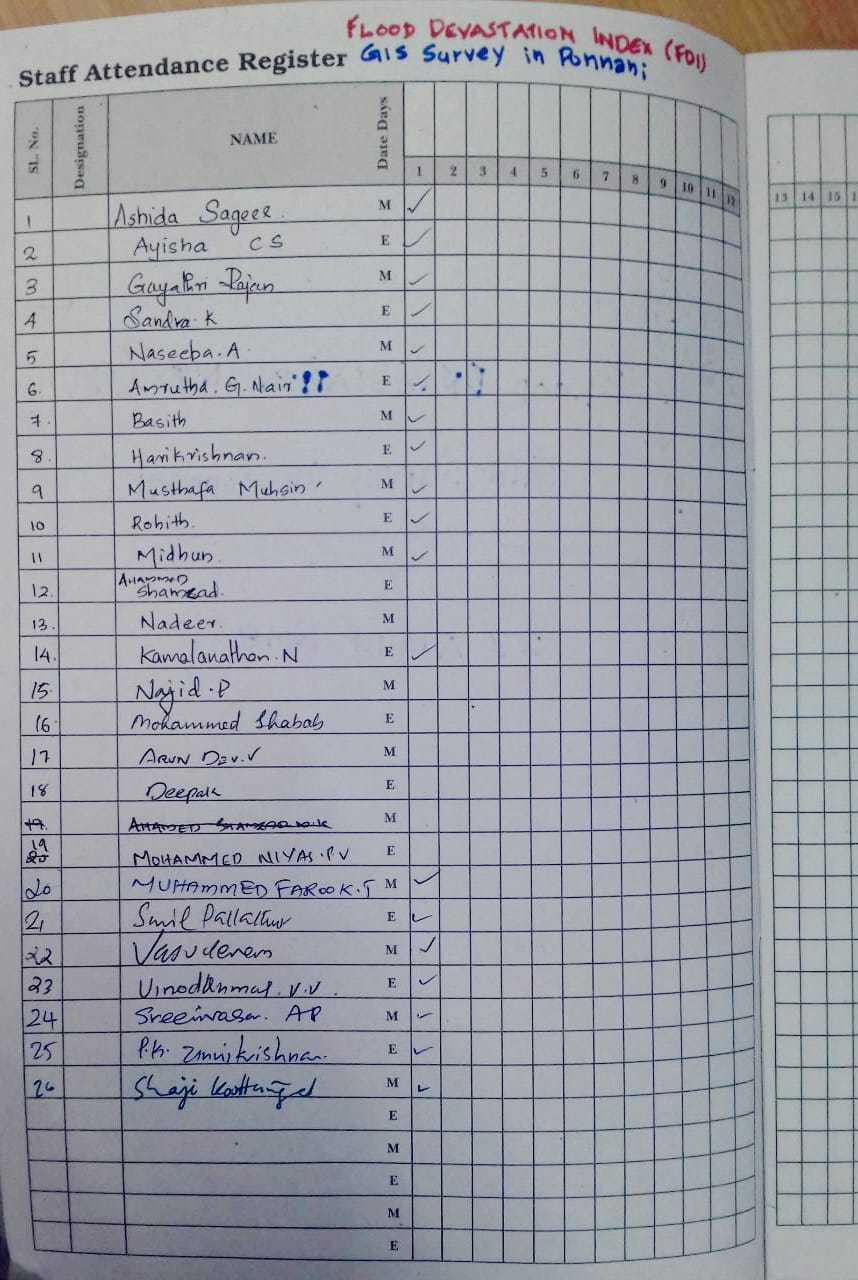 FLOOD DEVASTATION INDEX (FDI)
Staff Attendance Register GIS Survey in Ponnani
SL. No. Designation NAME Date Days
1 2 3 4 5 6 7 8 9 10 11 12 13 14 15 1
1 Ashida Sageer. M ✓
2 Ayisha C S E ✓
3 Gayathri Rajan M ✓
4 Sandra. K E ✓
5 Naseeba. A M ✓
6. Amrutha. G. Nair E ✓
7. Basith M ✓
8. Harikrishnan. E ✓
9 Musthafa Muhsin M ✓
10 Rohith. E ✓
11 Midhun M ✓
12. AHAMMED Shamzad. E
13. Nadeer. M
14. Kamalanathan. N E ✓
15. Najid. P M
16. Mohammed Shabab E
17 ARUN DEV. V M
18 Deepak E
19. AHAMED SHAMZAD M
19 20 MOHAMMED NIYAS. P V E
20 MUHAMMED FAROOK. T M ✓
21 Sunil E ✓
22 Vasudevan M ✓
23 V.V. E ✓
24 Sreenivasan. AP M ✓
25 P.K. Unnikrishnan. E ✓
26 Shaji M ✓
E
M
E
M
E